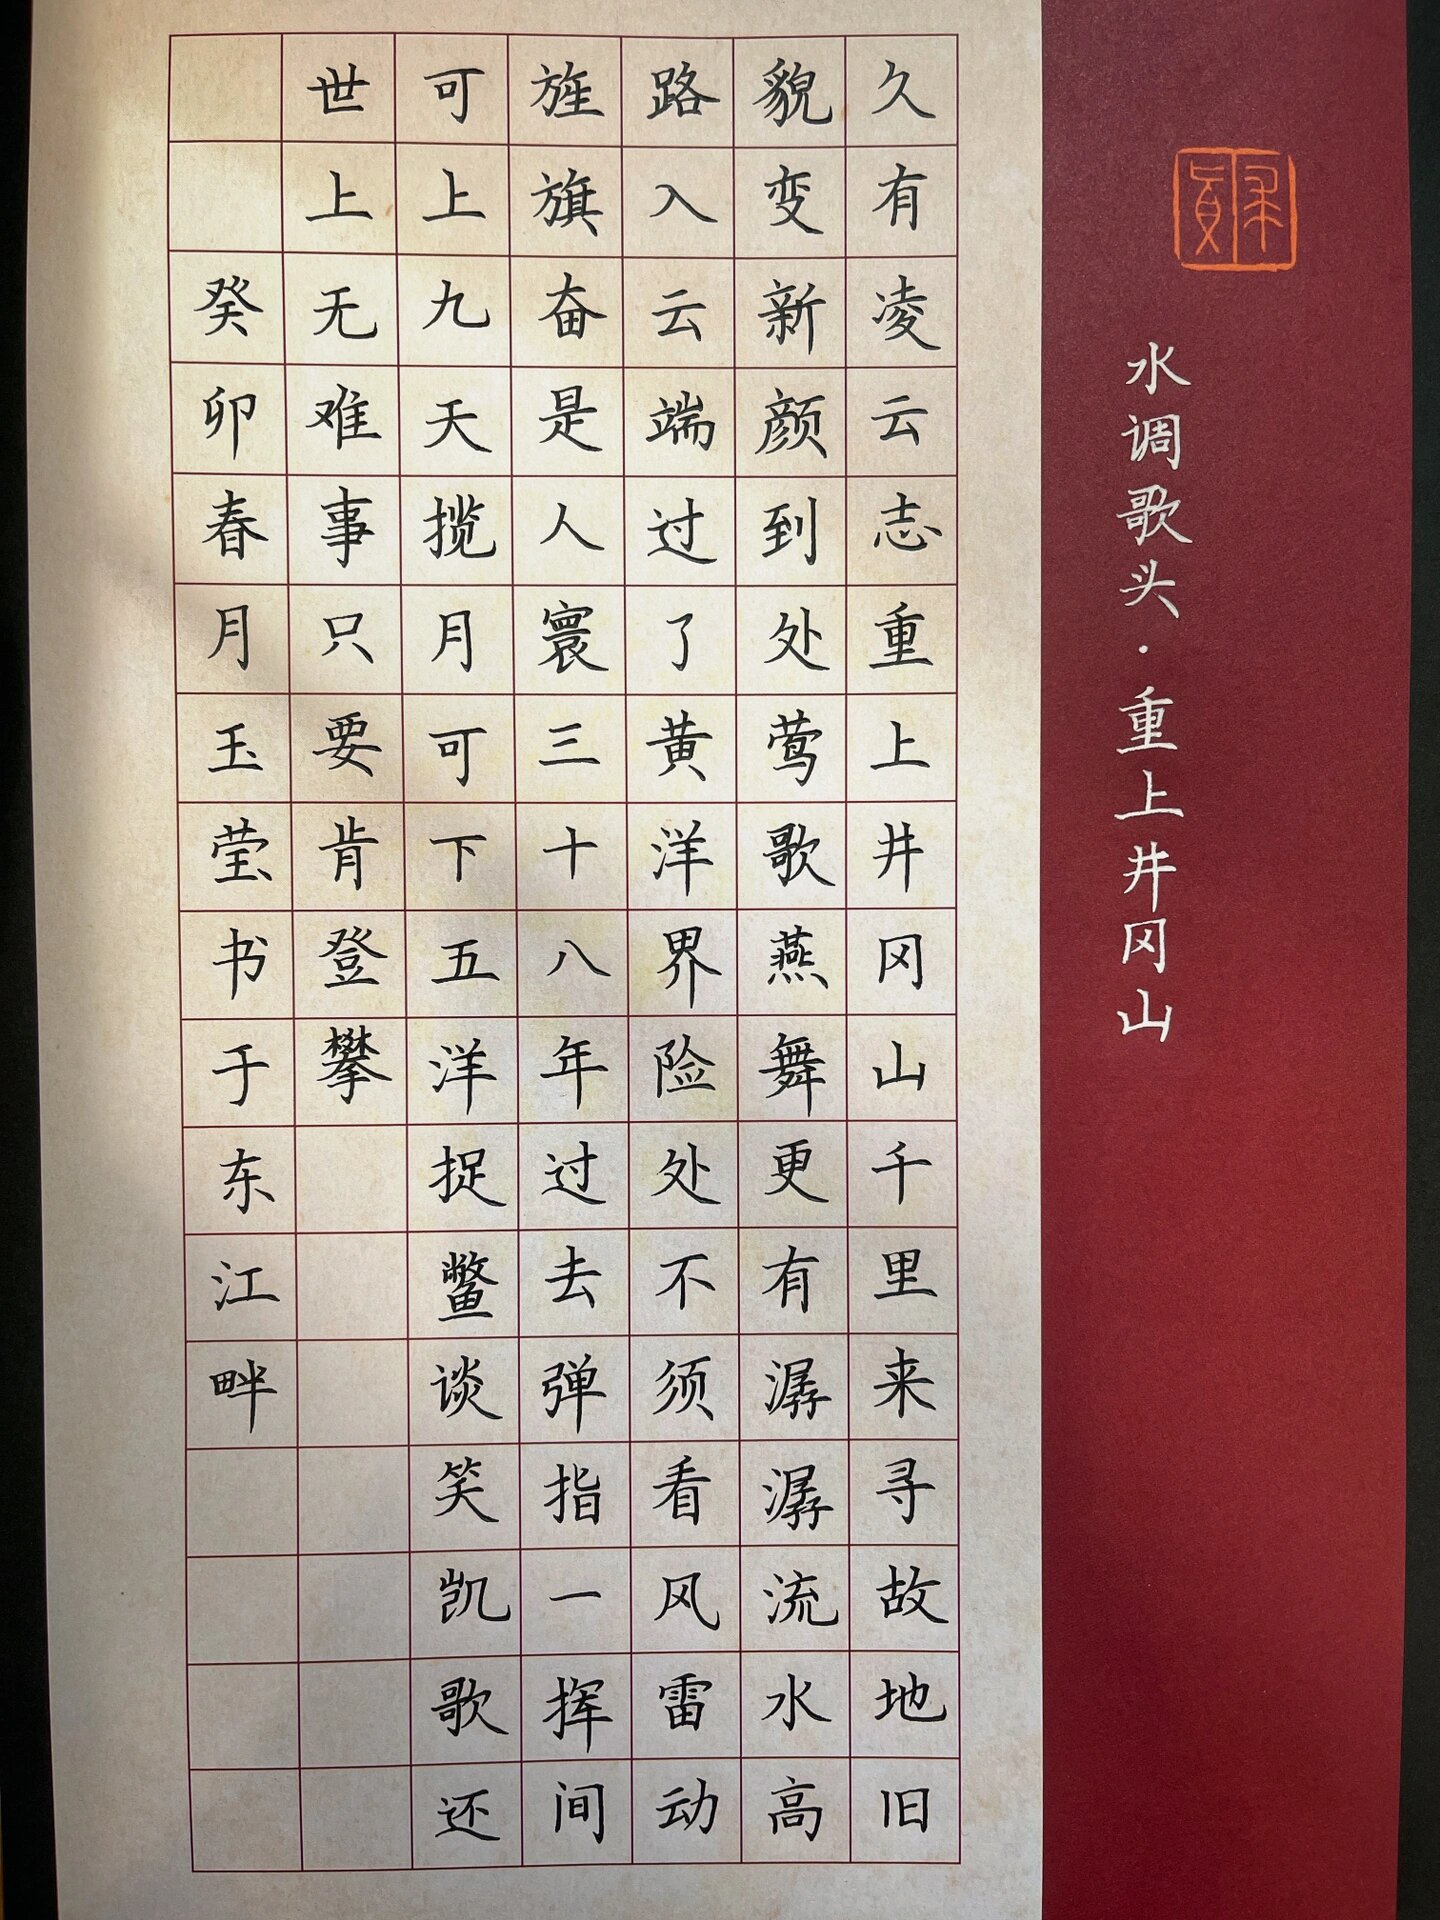 水调歌头·重上井冈山
久有凌云志重上井冈山千里来寻故地旧
貌变新颜到处莺歌燕舞更有潺潺流水高
路入云端过了黄洋界险处不须看风雷动
旌旗奋是人寰三十八年过去弹指一挥间
可上九天揽月可下五洋捉鳖谈笑凯歌还
世上无难事只要肯登攀
癸卯春月玉莹书于东江畔